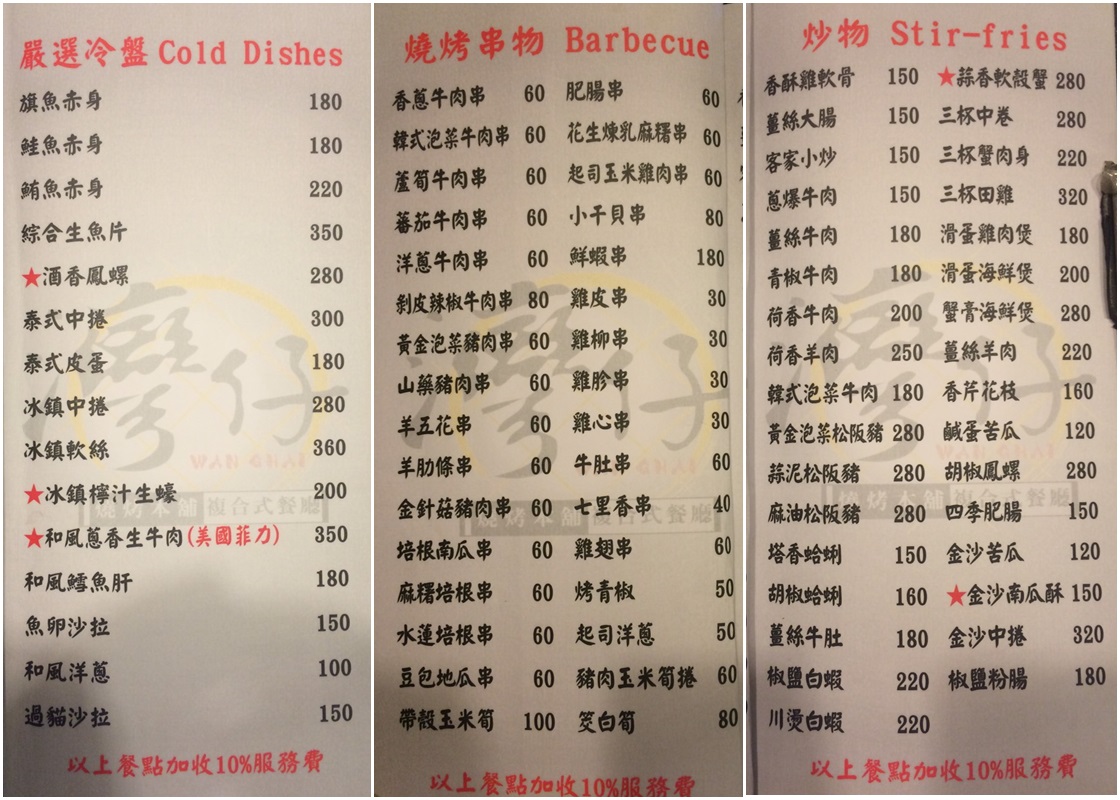 嚴選冷盤 Cold Dishes
旗魚赤身 180
鮭魚赤身 180
鮪魚赤身 220
綜合生魚片 350
★酒香鳳螺 280
泰式中捲 300
泰式皮蛋 180
冰鎮中捲 280
冰鎮軟絲 360
★冰鎮檸汁生蠔 200
★和風蔥香生牛肉(美國菲力) 350
和風鱈魚肝 180
魚卵沙拉 150
和風洋蔥 100
過貓沙拉 150
以上餐點加收10%服務費
灣仔
WAN CHAI
燒烤本舖 複合式餐廳
燒烤串物 Barbecue
香蔥牛肉串 60 肥腸串 60
韓式泡菜牛肉串 60 花生煉乳麻糬串 60
蘆筍牛肉串 60 起司玉米雞肉串 60
蕃茄牛肉串 60 小干貝串 80
洋蔥牛肉串 60 鮮蝦串 180
剝皮辣椒牛肉串 80 雞皮串 30
黃金泡菜豬肉串 60 雞柳串 30
山藥豬肉串 60 雞胗串 30
羊五花串 60 雞心串 30
羊肋條串 60 牛肚串 60
金針菇豬肉串 60 七里香串 40
培根南瓜串 60 雞翅串 60
麻糬培根串 60 烤青椒 50
水蓮培根串 60 起司洋蔥 50
豆包地瓜串 60 豬肉玉米筍捲 60
帶殼玉米筍 100 筊白筍 80
以上餐點加收10%服務費
灣仔
WAN CHAI
燒烤本舖 複合式餐廳
炒物 Stir-fries
香酥雞軟骨 150 ★蒜香軟殼蟹 280
薑絲大腸 150 三杯中卷 280
客家小炒 150 三杯蟹肉身 220
蔥爆牛肉 150 三杯田雞 320
薑絲牛肉 180 滑蛋雞肉煲 180
青椒牛肉 180 滑蛋海鮮煲 200
荷香牛肉 200 蟹膏海鮮煲 280
荷香羊肉 250 薑絲羊肉 220
韓式泡菜牛肉 180 香芹花枝 160
黃金泡菜松阪豬 280 鹹蛋苦瓜 120
蒜泥松阪豬 280 胡椒鳳螺 280
麻油松阪豬 280 四季肥腸 150
塔香蛤蜊 150 金沙苦瓜 120
胡椒蛤蜊 160 ★金沙南瓜酥 150
薑絲牛肚 180 金沙中捲 320
椒鹽白蝦 220 椒鹽粉腸 180
川燙白蝦 220
以上餐點加收10%服務費
灣仔
WAN CHAI
燒烤本舖 複合式餐廳